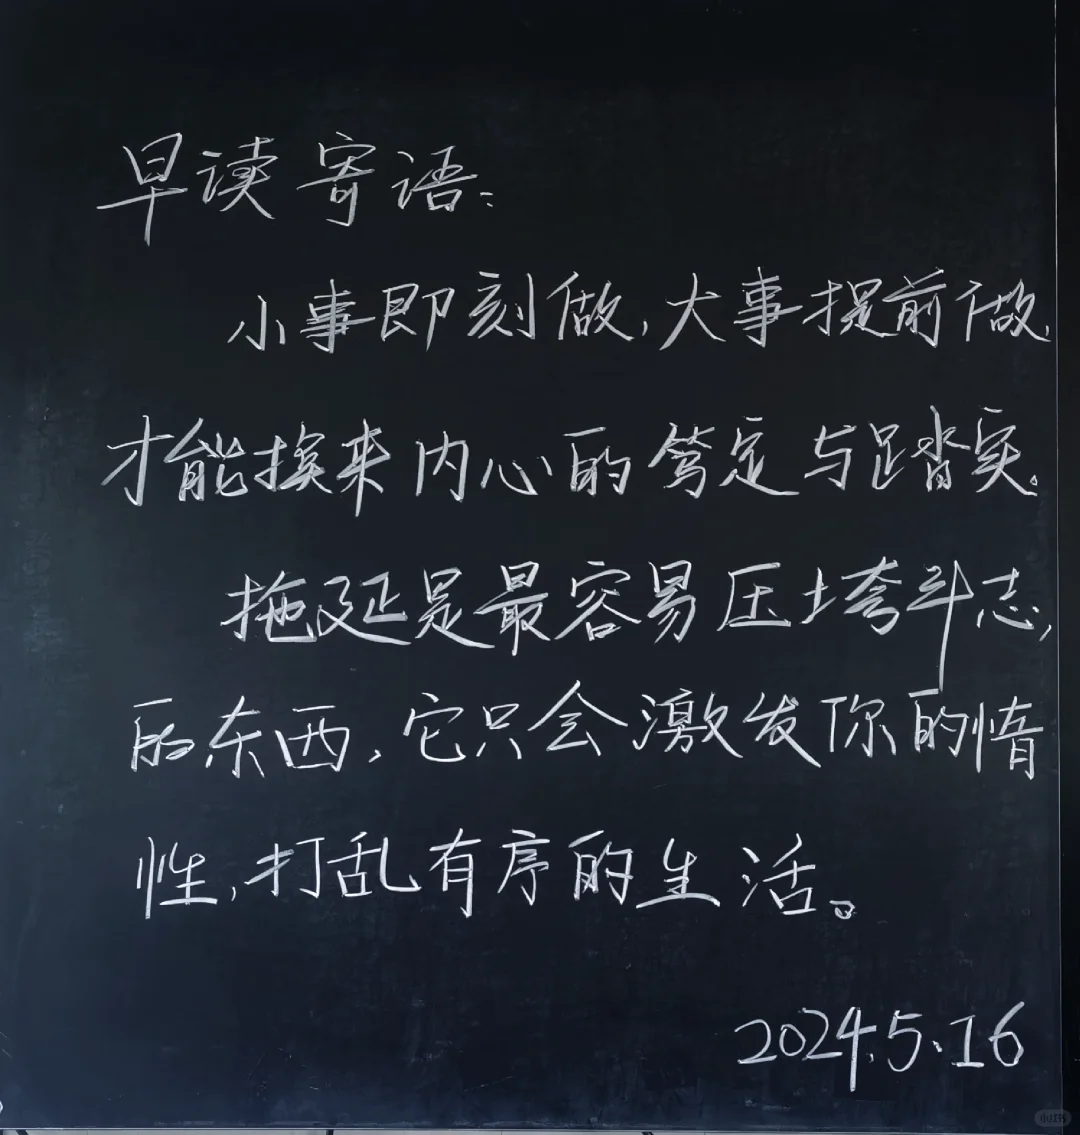 早读寄语:
小事即刻做,大事提前做,
才能换来内心的笃定与踏实。
拖延是最容易压垮斗志,
的东西,它只会激发你的惰
性,打乱有序的生活。
2024.5.16
小红书